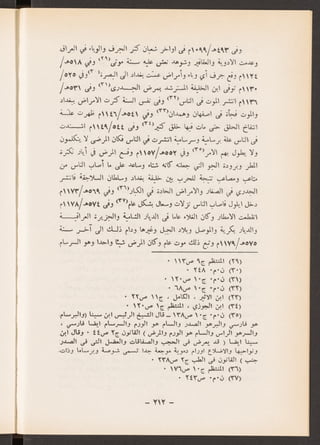 وفي ٤٩٣هـ/١٠٩٩م وفي اواخر شعبان كثر الجرف والوباء في العراق
وعدمت الادوية والعقاقير وشوهد نعش عليه ستة موتى(٢٩) وفي ٥١٨هـ/
١١٢٤م وقع جرف أي وباء وأمراض عمت بغداد الى البصرة(٣٠) وفي ٥٢٥/
١١٣٠م توفى ابن الخليفة المسترشد بمرض الجدري(٣١) وفي ٥٣١هـ/
١١٣٦م انتشر الموت في الناس(٣٢) وفي نفس السنة كثرت الامراض ببغداد
والموت فجأة في اصفهان وهمدان(٣٣) وفي ٥٤١هـ/١١٤٦م ظهرت علة
انتفاخ الحلق حتى مات فيها خلق كثير(٣٤) وفي ٥٤٤/١١٤٩م اشتدت
في الناس علة برسامية وسرسامية انتشرت في الناس فكان المرضى لا يتكلمون
ولا يطول بهم الامر(٣٥) وفي ٥٥٢هـ/١١٥٧م وقع المرض في أيار لكثرة
المطر وبرودة الجو التي جعلته كأنه شتاء وساعد على ما أصاب الناس من
متاعب ومصاعب نتيجة للحرب بين خليفة بغداد وسلطان السلاجقة فانتشر
الجدري في الصغار والامراض الحادة في الكبار(٣٦) وفي ٥٦٩هـ/١١٧٣م
دخل ايلول فاصاب الناس نزلات وسعال بشكل عام(٣٧) وفي ٥٧٤هـ/١١٧٨م
انقطعت الامطار وكان الغلاء عاما في الديار الشامية والجزيرة العراقية
والديار بكرية والموصل وبلاد الجبل وغيرها ودام ذلك الى آخر سنة
٥٧٥هـ/١١٧٩م وتبع ذلك موت عام وكان المرض شيئا واحدا وهو السرسام
(٢٩) المنتظم ج٩ ص١١٣ ·
(٣٠) م·ن· ٢٤٨ ·
(٣١) م·ن· ج١٠ ص١٢٠ ·
(٣٢) م·ن· ج١٠ ص٦٨ ·
(٣٣) ابن الاثير ، الكامل ، ج١١ ص٢٢ ·
(٣٤) ابن الجوزي ، المنتظم ج١٠ ص١٢٠ ·
(٣٥) م·ن· ج١٠ ص١٣٨ ــ قال الشيخ الرئيس ابن سينا (والبرسام
هو فارسي والبرهو الصدر والسام هو الورم والسرسام ايضا فارسي ،
والسرهو الراس والسام هو الورم والمرض) القانون ج٢ ص٤٤ · وقال ابن
سينا ايضا ( قد يعرض في الحجب والصفاقات والعضل التي في الصدر
ونواحيها والاضلاع اورام دموية موجعة جدا تسمى شوصة وبرساما وذات
جنب ) القانون في الطب ج٢ ص٢٣٨ ·
(٣٦) المنتظم ج١٠ ص١٧٦ ·
(٣٧) م·ن· ج١٠ ص٢٤٣ ·
ــ ٢١٢ ــ